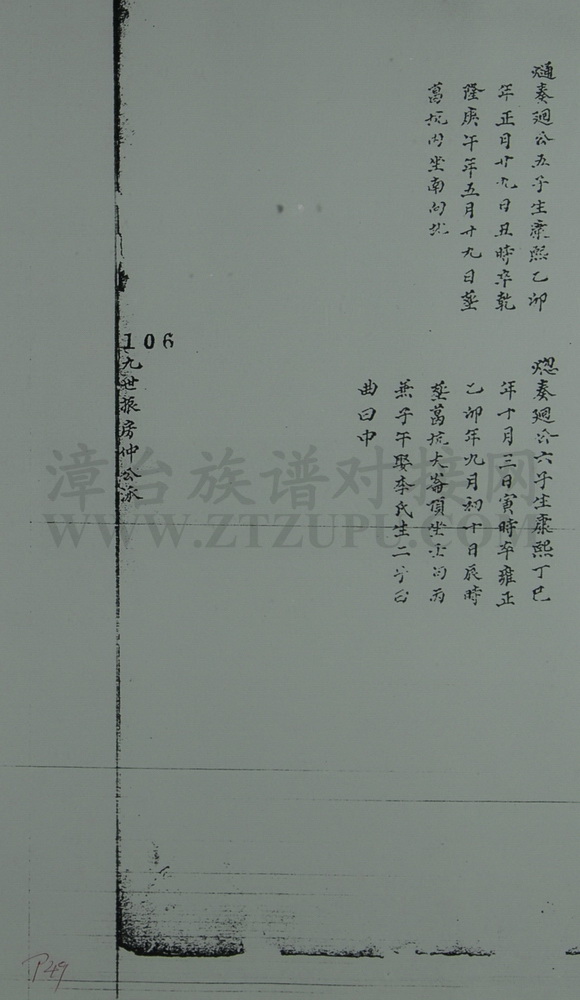 熥奏廻公五子生康熙乙卯
年正月廿九日丑時卒乾
隆庚午年五月廿九日塟
葛坑内坐南向北
熜奏廻公六子生康熙丁巳
年十月三日寅時卒雍正
乙卯年九月初十日辰時
塟葛坑大崙頂坐壬向丙
兼子午娶李氏生二子曰
曲曰中
106
九世振房仲公派
漳台族谱对接网
WWW.ZTZUPU.COM
P49